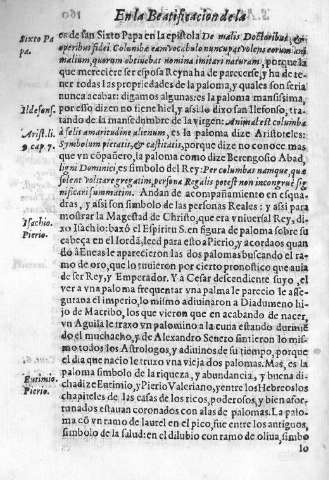 En la Beatificacion de la
Sixto Papa.
es de san Sixto Papa en la epistola De malis Doctoribus, &
operibus fidei. Columbæ nam vocabulo nuncupat volens eorum ani
malium, quorum obtinebat nomina imitari naturam, porque la
que mereciere ser esposa Reyna ha de parecerse, y ha de te-
ner todas las propriedades de la paloma, y quales son seria
nunca acabar: digamos algunas: es la paloma mansissima,
Ildefons.
por esso dizen no tiene hiel, y assi lo dixo san Ilefonso, tra-
tando de la mansedumbre de la virgen: Animal est columba
Arist. li. 9 cap. 7.
à felis amaritudine alienum, es la paloma dize Aristoteles:
Symbolum pietatis, & castitatis, porque dize no conoce mas
que vn cõpañero, la paloma como dize Berengosio Abad,
ligni Dominici, es simbolo del Rey: Per columbas namque, quæ
solent volitare gregatim, persona Regalis potest non incongruè sig
nificari summatim. Andan de acompañamiento en esqua-
dras, y assi son simbolo de las personas Reales: y assi para
mostrar la Magestad de Christo, que era vniuersal Rey, di-
Isachio.
xo Isachio: baxó el Espiritu S. en figura de paloma sobre su
Pierio.
cabeça en el Iordã, leed para esto a Pierio, y acordaos quan
do à Eneas le aparecieron las dos palomas buscando el ra-
mo de oro, que lo tuuieron por cierto pronostico que auia
de ser Rey, y Emperador. Y a Cesar descendiente suyo, el
ver a vna paloma frequentar vna palma le parecio le asse-
gurana el imperio, lo mismo adiuinaron a Diadumeno hi-
jo de Macribo, los que vieron que en acabando de nacer,
vn Aguila le traxo vn palomino a la cuna estando durmié
do el muchacho, y de Alexandro Seuero sintieron lo mis-
mo todos los Astrologos, y adiuinos de su tiempo, porque
el dia que nacio le truxo vna vieja dos palomas. Mas, es la
paloma simbolo de la riqueza, y abundancia, y buena di-
Eutimio.
cha dize Eutimio, y Pierio Valeriano, y entre los Hebreos los
Pierio.
chapiteles de las casas de los ricos, poderosos, y bien afor-
tunados estauan coronados con alas de palomas. La palo-
ma cõ vn ramo de laurel en el pico, fue entre los antiguos,
simbolo de la salud: en el dilubio con ramo de oliua, simbo
lo